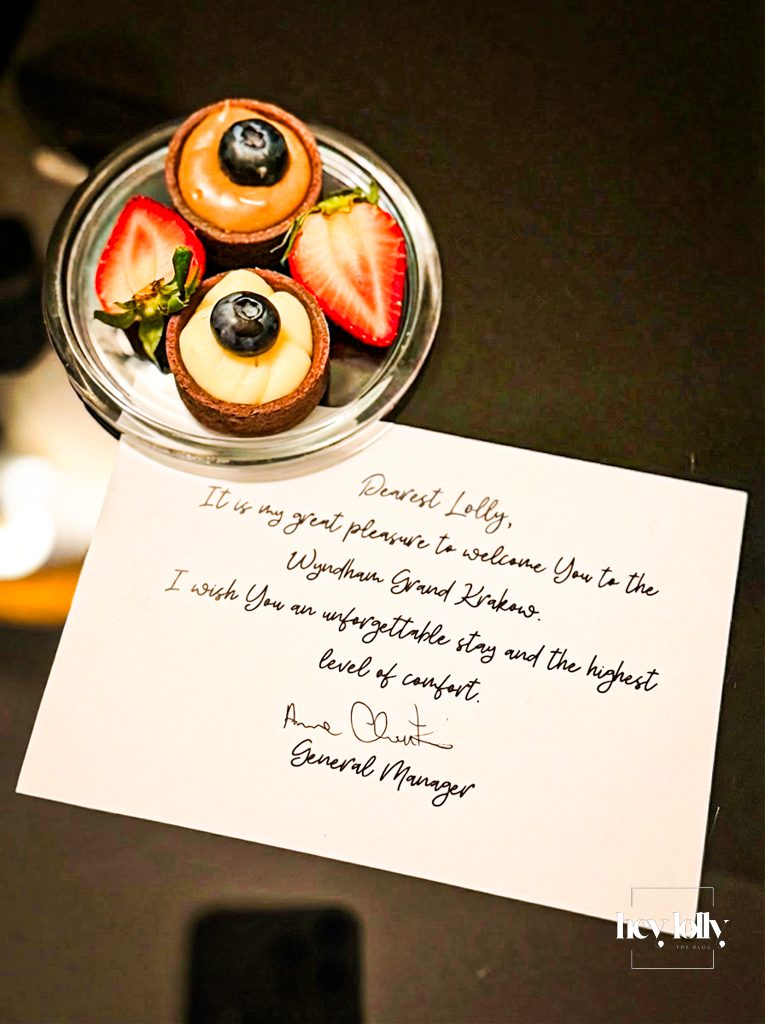 Dearest Lolly,
It is my great pleasure to welcome You to the
Wyndham Grand Krakow.
I wish You an unforgettable stay and the highest
level of comfort.
General Manager
hey, lolly,
THE BLOG